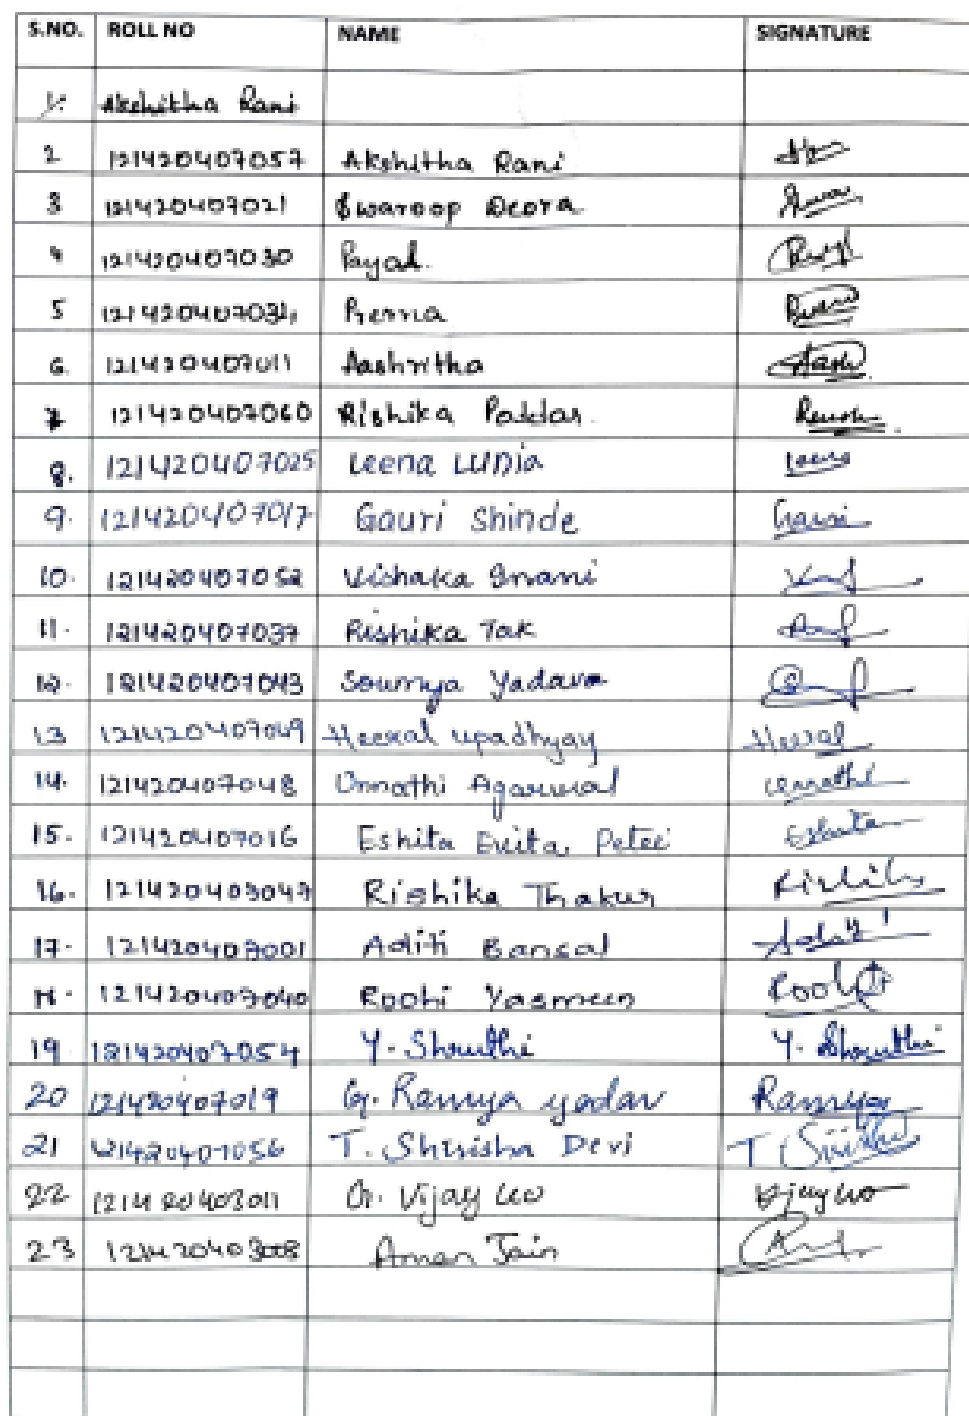 S.NO. ROLL NO NAME SIGNATURE
1. Akshitha Rani
2 121420407057 Akshitha Rani
3 121420407021 Swaroop Deora
4 121420407030 Payal.
5 Prerna
6. 121420407011 Aashritha
7 121420407060 Rishika Poddar.
8. 121420407025 Leena LUNia
9. 121420407017 Gauri Shinde Gauri
10. 121420407052 Vishaka
11. 121420407037 Rishika Tak
12. 121420407043 Soumya Yadav
13 121420407049 Heeral upadhyay Heeral
14. 121420407048 Unnathi Agarwal Unnathi
15. 121420407016 Eshita Evita Eshita
16. Rishika Thakur
17. 121420407001 Aditi Bansal Aditi
18. 121420407040 Roohi Yasmeen Roohi
19 121420407054 Y. Shruthi Y. Shruthi
20 121420407019 G. Ramya yadav Ramya
21 121420407056 T. Shirisha Devi
22 121420403011 G. Vijay
23 Aman Jain